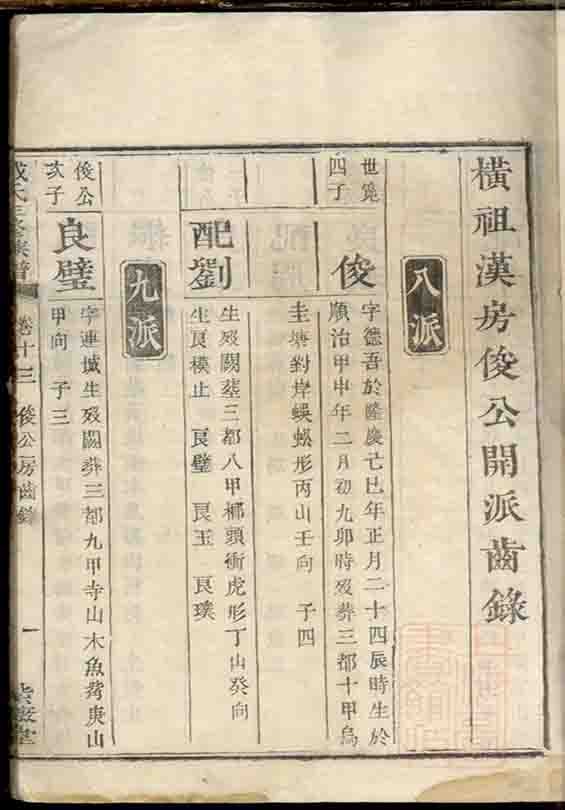 橫祖漢房俊公開派齒錄
八派
世寬
四子
俊
字德吾於隆慶己巳年正月二十四辰時生於
順治甲申年二月初九卯時歿葬三都十甲烏
圭塘對岸蜈蚣形丙山壬向 子四
配劉
生歿闕葬三都八甲梛頭衝虎形丁山癸向
生良模止 良璧 良玉 良璞
九派
俊公
次子
良璧
字連城生歿闕葬三都九甲寺山木魚背庚山
甲向 子三
氏三修族譜 卷十三 俊公房齒錄 一 堂